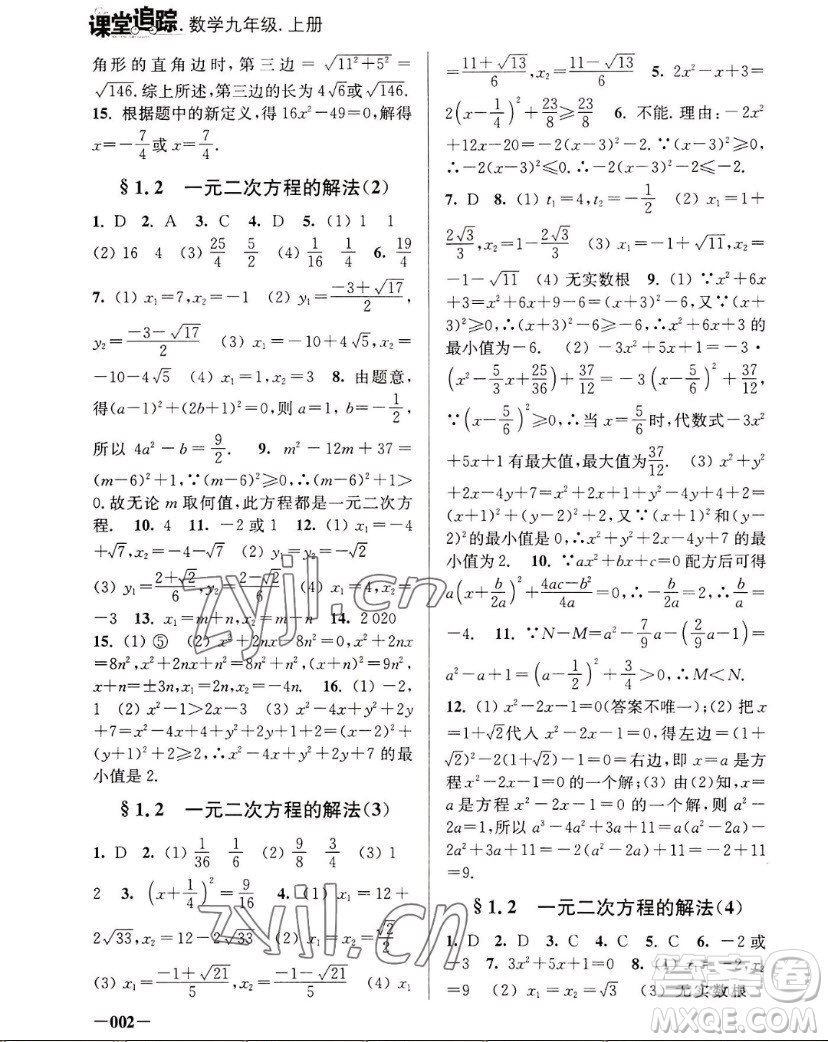 课堂追踪.数学九年级.上册
角形的直角边时,第三边=√(11²+5²)=
√146.综上所述,第三边的长为4√6或√146.
15. 根据题中的新定义,得16x²-49=0,解得
x=-7/4或x=7/4.
§1.2 一元二次方程的解法(2)
1. D 2. A 3. C 4. D 5. (1) 1 1
(2) 16 4 (3) 25/4 5/2 (4) 1/16 1/4 6. 19/4
7. (1) x₁=7,x₂=-1 (2) y₁=(-3+√17)/2,
y₂=(-3-√17)/2 (3) x₁=-10+4√5,x₂=
-10-4√5 (4) x₁=x₂=3 8. 由题意,
得(a-1)²+(2b+1)²=0,则a=1,b=-1/2,
所以4a²-b=9/2. 9. m²-12m+37=
(m-6)²+1,∵(m-6)²≥0,∴(m-6)²+1>
0.故无论m取何值,此方程都是一元二次方
程. 10. 4 11. -2或1 12. (1) x₁=-4
+√7,x₂=-4-√7 (2)
(3) y₁=(2+√2)/6,y₂=(2-√2)/6 (4) x₁=4,x₂=
-3 13. x₁=m+n,x₂=m-n 14. 2 020
15. (1) ⑤ (2) x²+2nx-8n²=0,x²+2nx
=8n²,x²+2nx+n²=8n²+n²,(x+n)²=9n²,
x+n=±3n,x₁=2n,x₂=-4n. 16. (1) -2,
1 (2) x²-1>2x-3 (3) x²-4x+y²+2y
+7=x²-4x+4+y²+2y+1+2=(x-2)²+
(y+1)²+2≥2,∴x²-4x+y²+2y+7的最
小值是2.
§1.2 一元二次方程的解法(3)
1. D 2. (1) 1/36 1/6 (2) 9/8 3/4 (3) 1
2 3. (x+1/4)²=9/16 4. (1) x₁=12+
2√33,x₂=12-2√33 (2) x₁=x₂=√2/2
(3) x₁=(-1+√21)/5,x₂=(-1-√21)/5 (4) x₁
=(11+√13)/6,x₂=(11-√13)/6 5. 2x²-x+3=
2(x-1/4)²+23/8≥23/8 6. 不能.理由:-2x²
+12x-20=-2(x-3)²-2.∵(x-3)²≥0,
∴-2(x-3)²≤0.∴-2(x-3)²-2≤-2.
7. D 8. (1) t₁=4,t₂=-1/2 (2) x₁=1+
2√3/3,x₂=1-2√3/3 (3) x₁=-1+√11,x₂=
-1-√11 (4) 无实数根 9. (1) ∵x²+6x
+3=x²+6x+9-6=(x+3)²-6,又∵(x+
3)²≥0,∴(x+3)²-6≥-6,∴x²+6x+3的
最小值为-6. (2) -3x²+5x+1=-3·
(x²-5/3x+25/36)+37/12=-3(x-5/6)²+37/12,
∵(x-5/6)²≥0,∴当x=5/6时,代数式-3x²
+5x+1有最大值,最大值为37/12. (3) x²+y²
+2x-4y+7=x²+2x+1+y²-4y+4+2=
(x+1)²+(y-2)²+2,又∵(x+1)²≥0,(y-
2)²≥0,∴(x+1)²+(y-2)²的最小值为0,∴当
x=-1且y=2时,x²+y²+2x-4y+7的最
小值为2. 10. ∵ax²+bx+c=0配方后可得
a(x+b/2a)²+(4ac-b²)/4a=0,∴-b/2a=2,∴b/a=
-4. 11. ∵N-M=a²-7/9a-(2/9a-1)=
a²-a+1=(a-1/2)²+3/4>0,∴M<N.
12. (1) x²-2x-1=0(答案不唯一) (2) 把
x=1+√2代入x²-2x-1=0,得左边=(1+
√2)²-2(1+√2)-1=0=右边,即x=1+√2是
方程x²-2x-1=0的一个解; (3) 由(2),知x
=a是方程x²-2x-1=0的一个解,则a²-
2a=1,所以a³-4a²+3a+10=a(a²-2a)-
2(a²-2a)-a+10=a-2-a-1+2+10
=9.
§1.2 一元二次方程的解法(4)
1. D 2. D 3. C 4. C 5. C 6. -2或
-3 7. 3x²+5x+1=0 8. (1) x₁=-2,x₂
=9 (2) x₁=x₂=√3 (3) 无实数根
—002—
zyjl.cn
zyjl.cn
答案圈
MXQE.COM